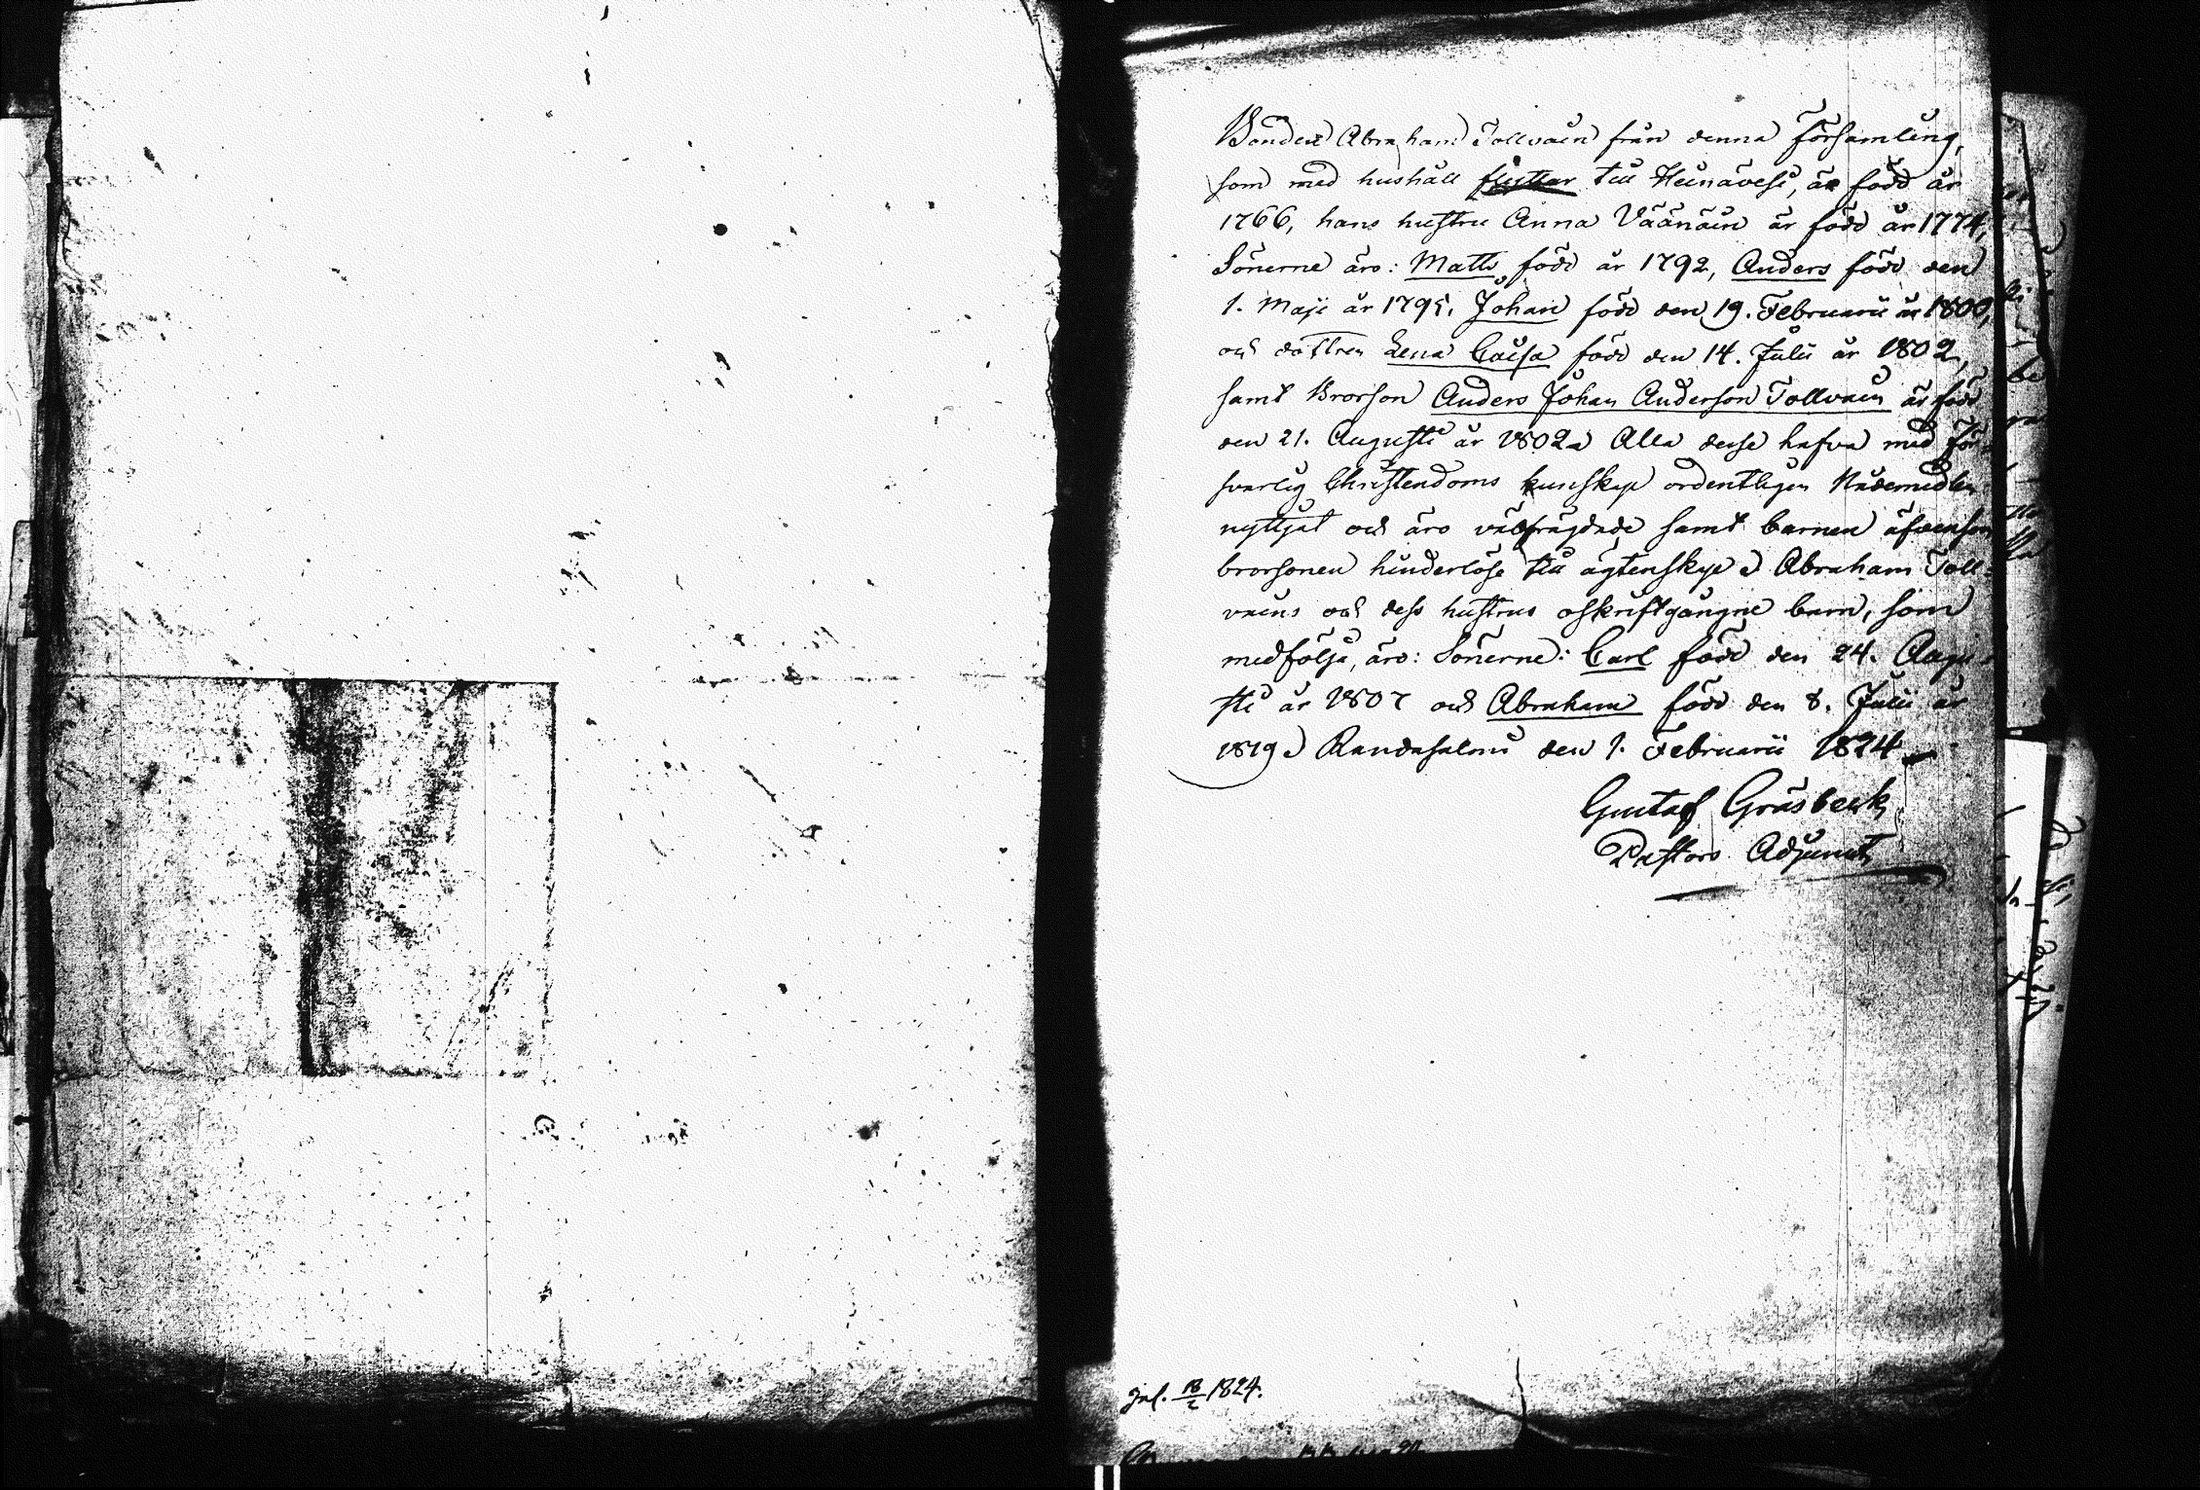 Bonden Abraham Tollvain från denna församling,
som med hushåll flyttar till Heinävesi, är född år
1766, hans hustru Anna Väänäin är född år 1774,
Sönerne äro: Matts född år 1792, Anders född den
1. Maji år 1795, Johan född den 19. Februarii år 1800,
och dottren Lena Caisa född den 14. Julii år 1802,
samt Brorson Anders Johan Anderson Tollvain är född
den 21. Augusti år 1802. Alla desse hafva med för-
svarlig Christendoms kunskap ordentligen Nådemedlen
nyttjat och äro välfrägdade samt barnen äfvensom
brorsonen hinderlöse till ägtenskap. Abraham Toll-
vains och dess hustrus oskriftgångne barn, som
medfölja, äro: Sönerne: Carl född den 24. Augu-
sti år 1807 och Abraham född den 8. Julii år
1819. Randasalmi den 1. Februarii 1824
Gustaf Gråsbeck
Pastors Adjunct
Inl. 18/2 1824.